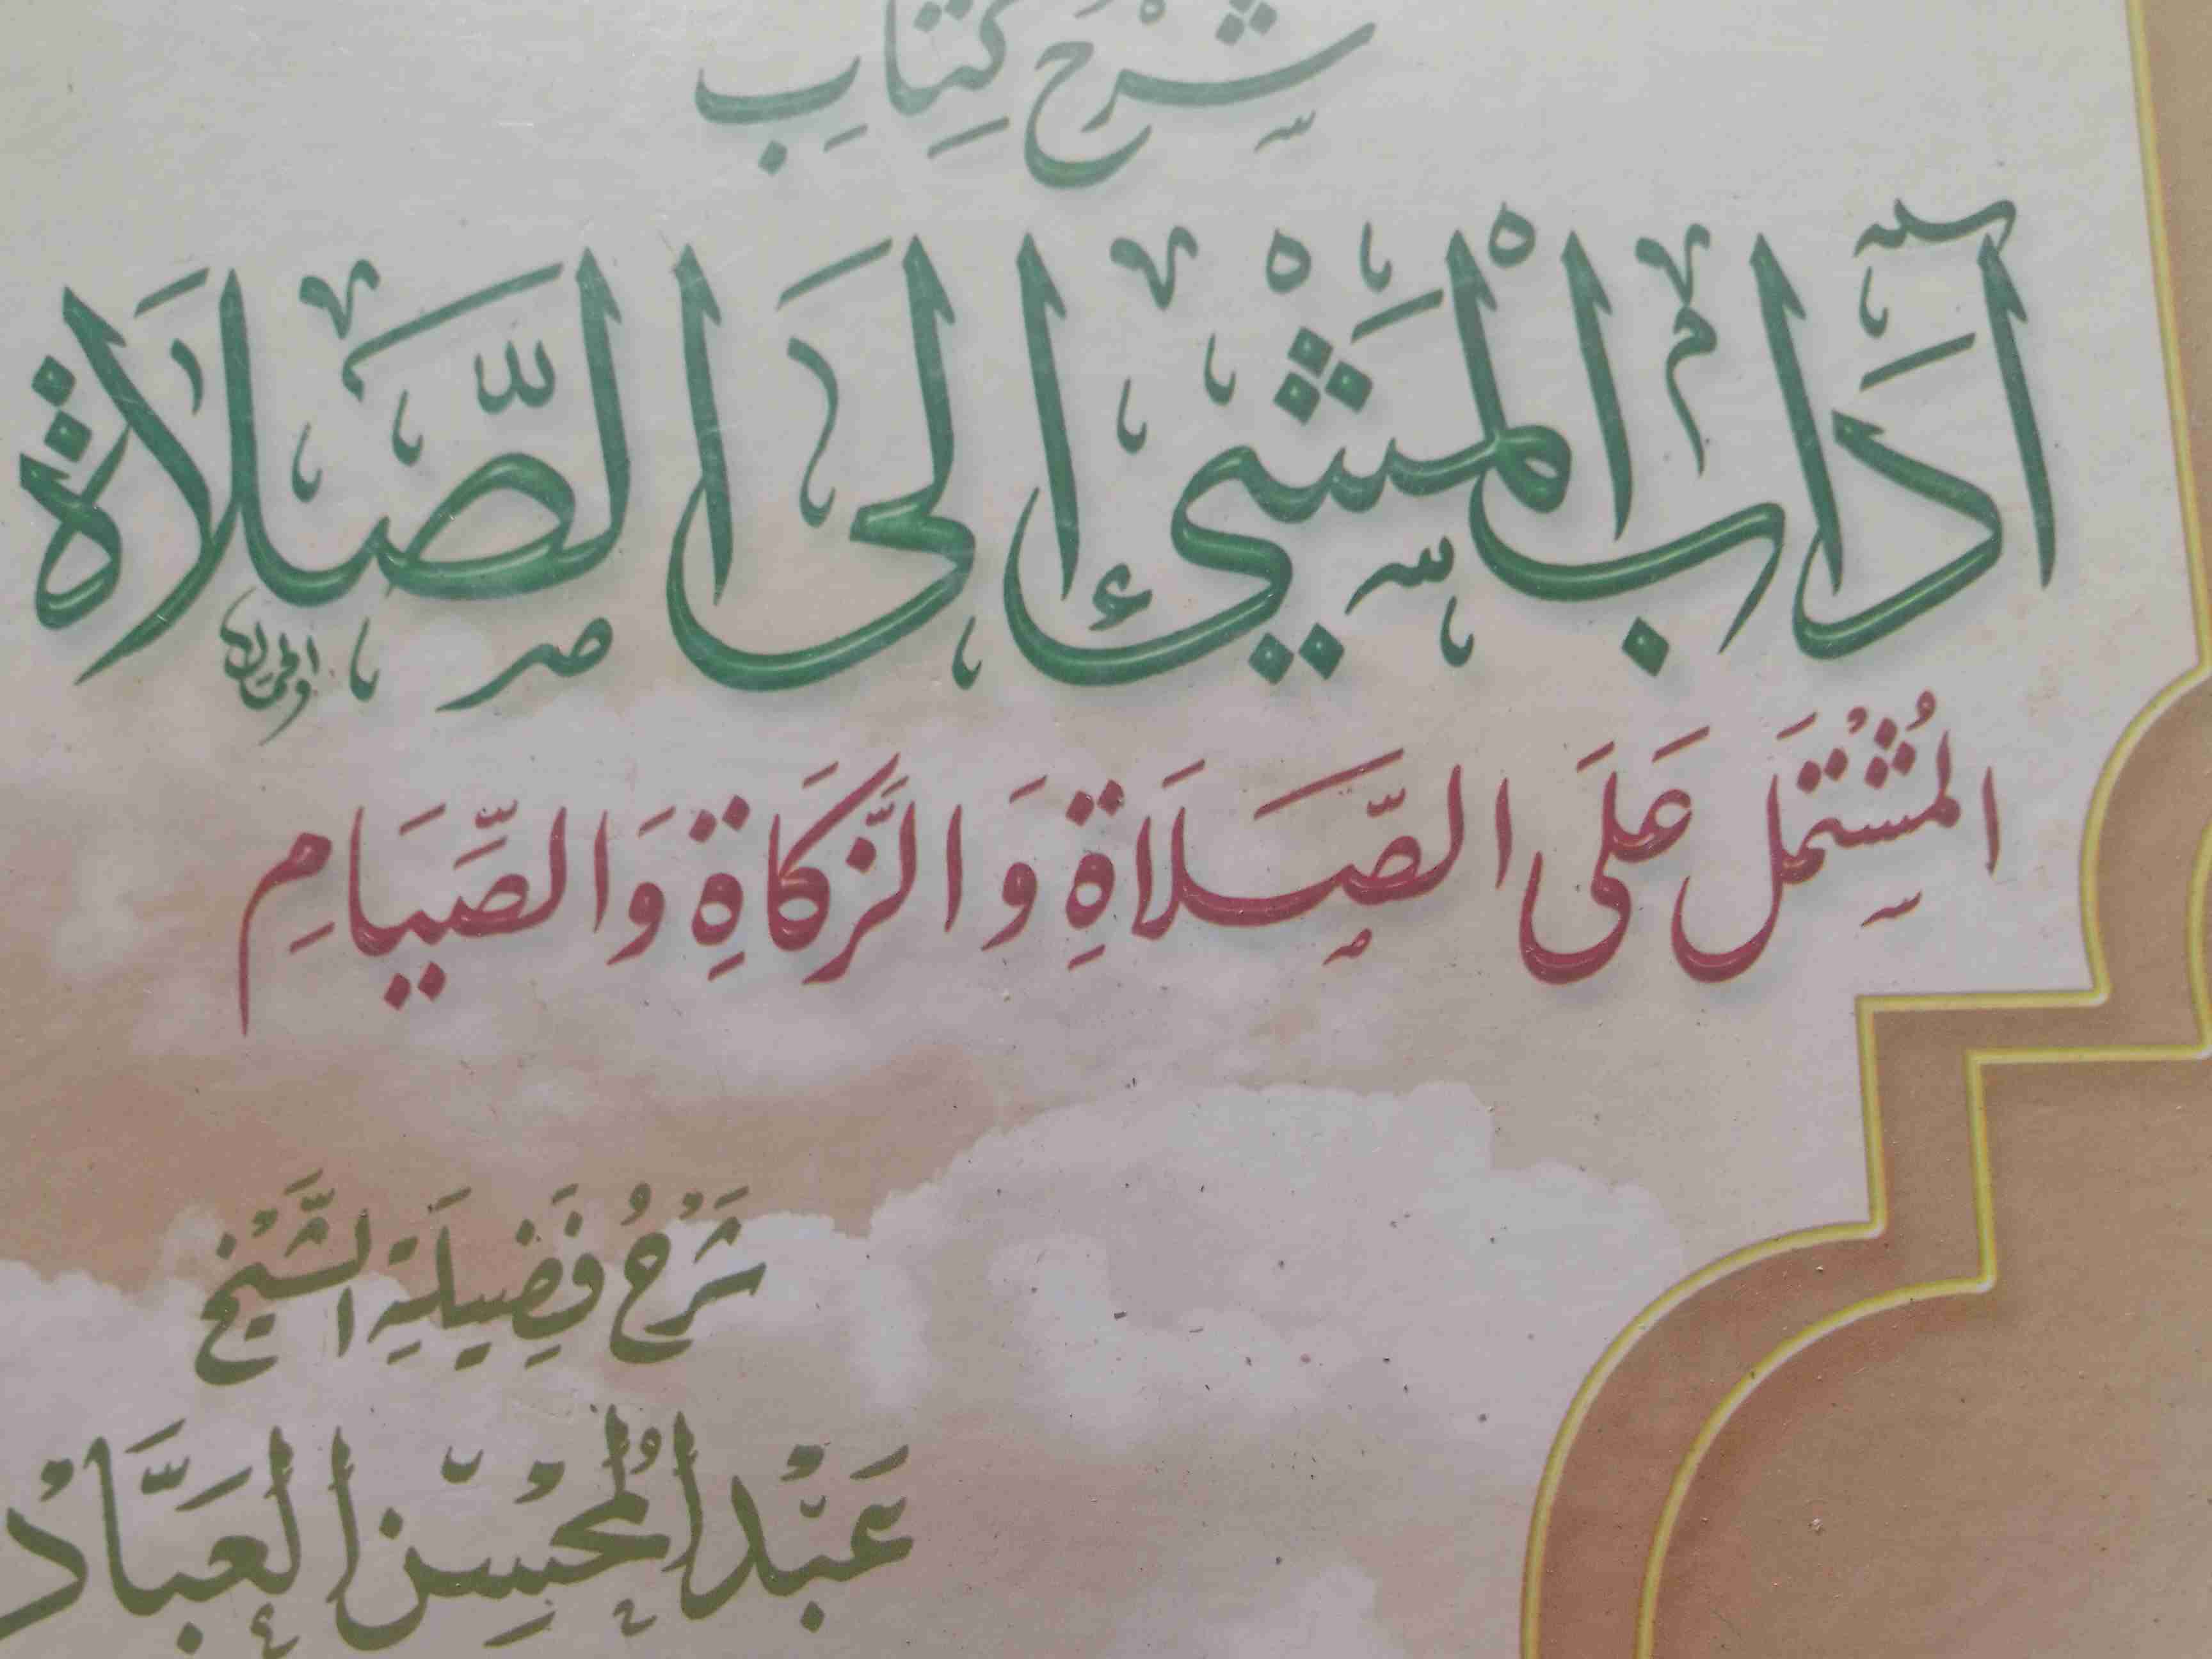 شَرْحُ كِتَابِ
آدَابُ الْمَشْيِ إِلَى الصَّلَاةِ
المُشْتَمِلِ عَلَى الصَّلَاةِ وَالزَّكَاةِ وَالصِّيَامِ
شَرْحُ فَضِيلَةِ الشَّيْخِ
عَبْدِ الْمُحْسِنِ الْعَبَّادْ